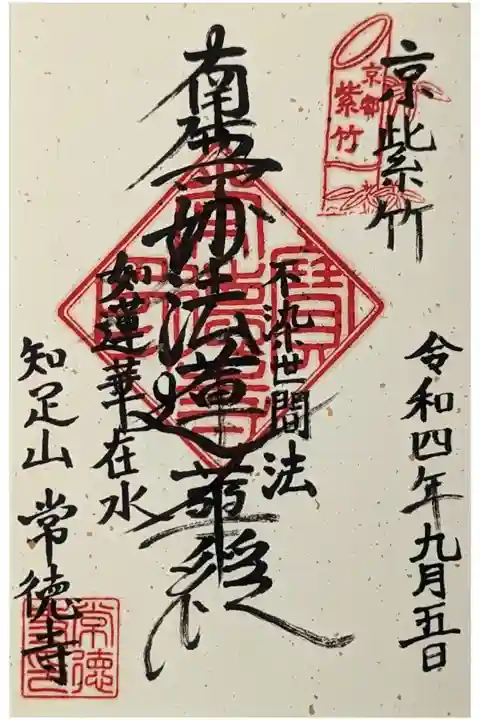 京紫竹
京都
紫竹
令和四年九月五日
不染世間法
南無妙法蓮華経
如蓮華在水
知足山 常徳寺
常徳